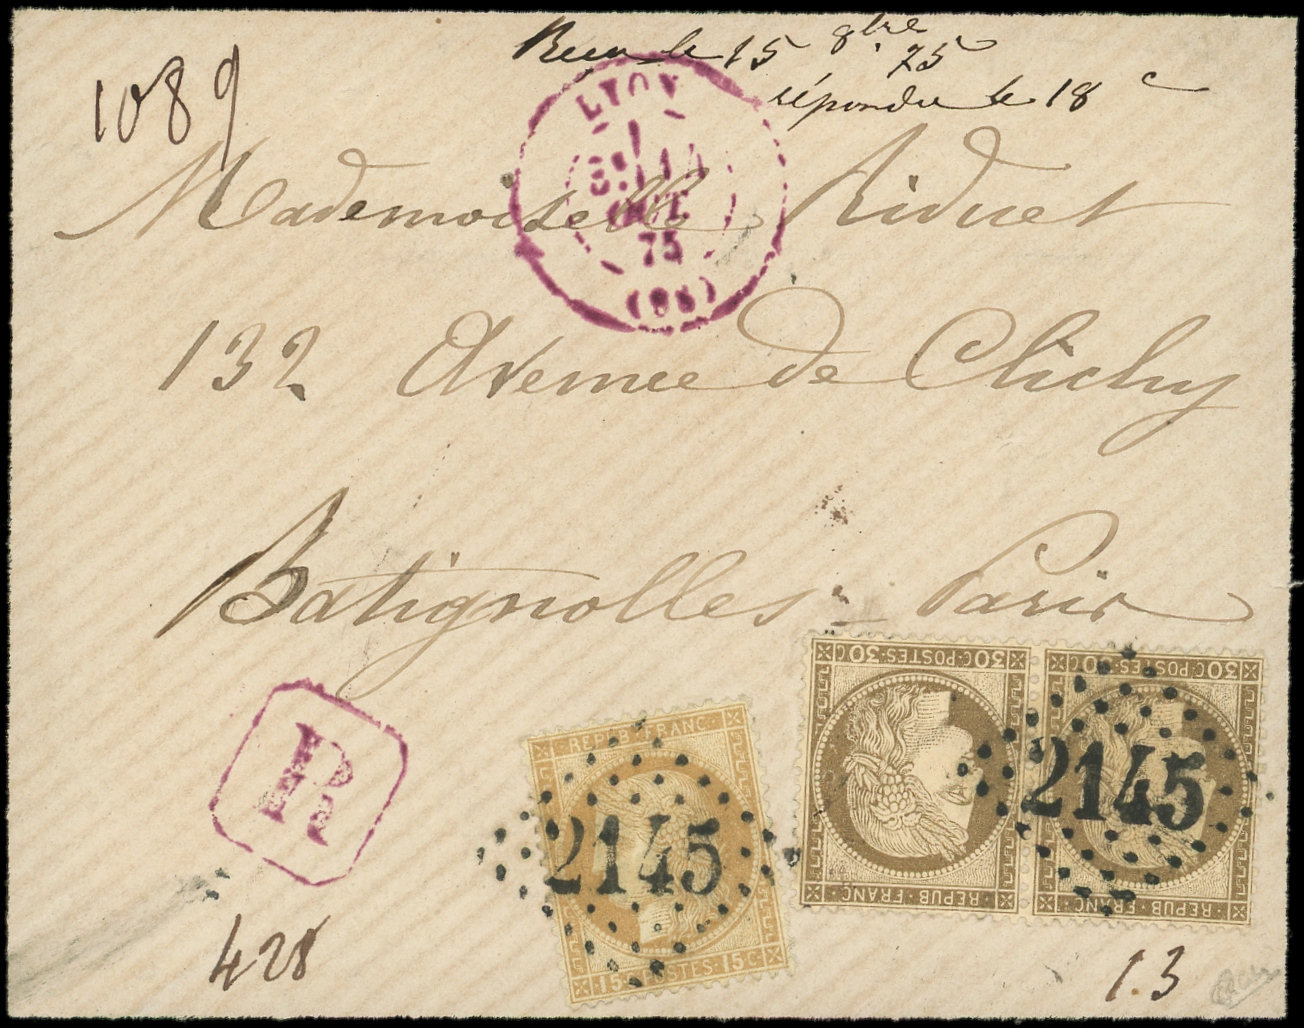 1089
Reçu le 15 8bre 75
répondu le 18 c
LYON
14
OCT.
75
(98)
Mademoiselle Riduet
132 Avenue de Clichy
Batignolles - Paris
R
428
REPUB. FRANC.
2145
15 C. POSTES. 15 C.
30 C. POSTES. 30 C.
30 C. POSTES. 30 C.
2145
REPUB. FRANC.
REPUB. FRANC.
1.3